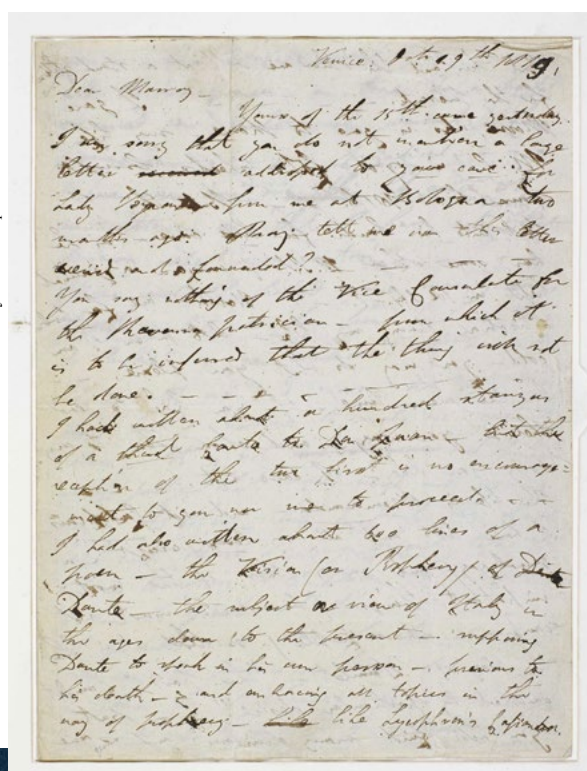 Venice. Oct. 29th 1819
Dear Murray –
Yours of the 15th came yesterday.
I am sorry that you do not mention a large
letter addressed to your care for
Lady Byron from me at Bologna – two
months ago. Pray tell me was this letter
received and forwarded? –
You say nothing of the Vice Consulate for
the Ravenna patrician – from which it
is to be inferred that the thing will not
be done. –
I had written about a hundred stanzas
of a third Canto to Don Juan – but the
reception of the two first is no encourage=
ment to you nor me to proceed –
I had also written about 600 lines of a
poem – the Vision (or Prophecy) of Dante
Dante – the subject a view of Italy in
the ages down to the present – supposing
Dante to speak in his own person – previous to
his death – and embracing all topics in the
way of prophecy – like Lycophron's Cassandra.